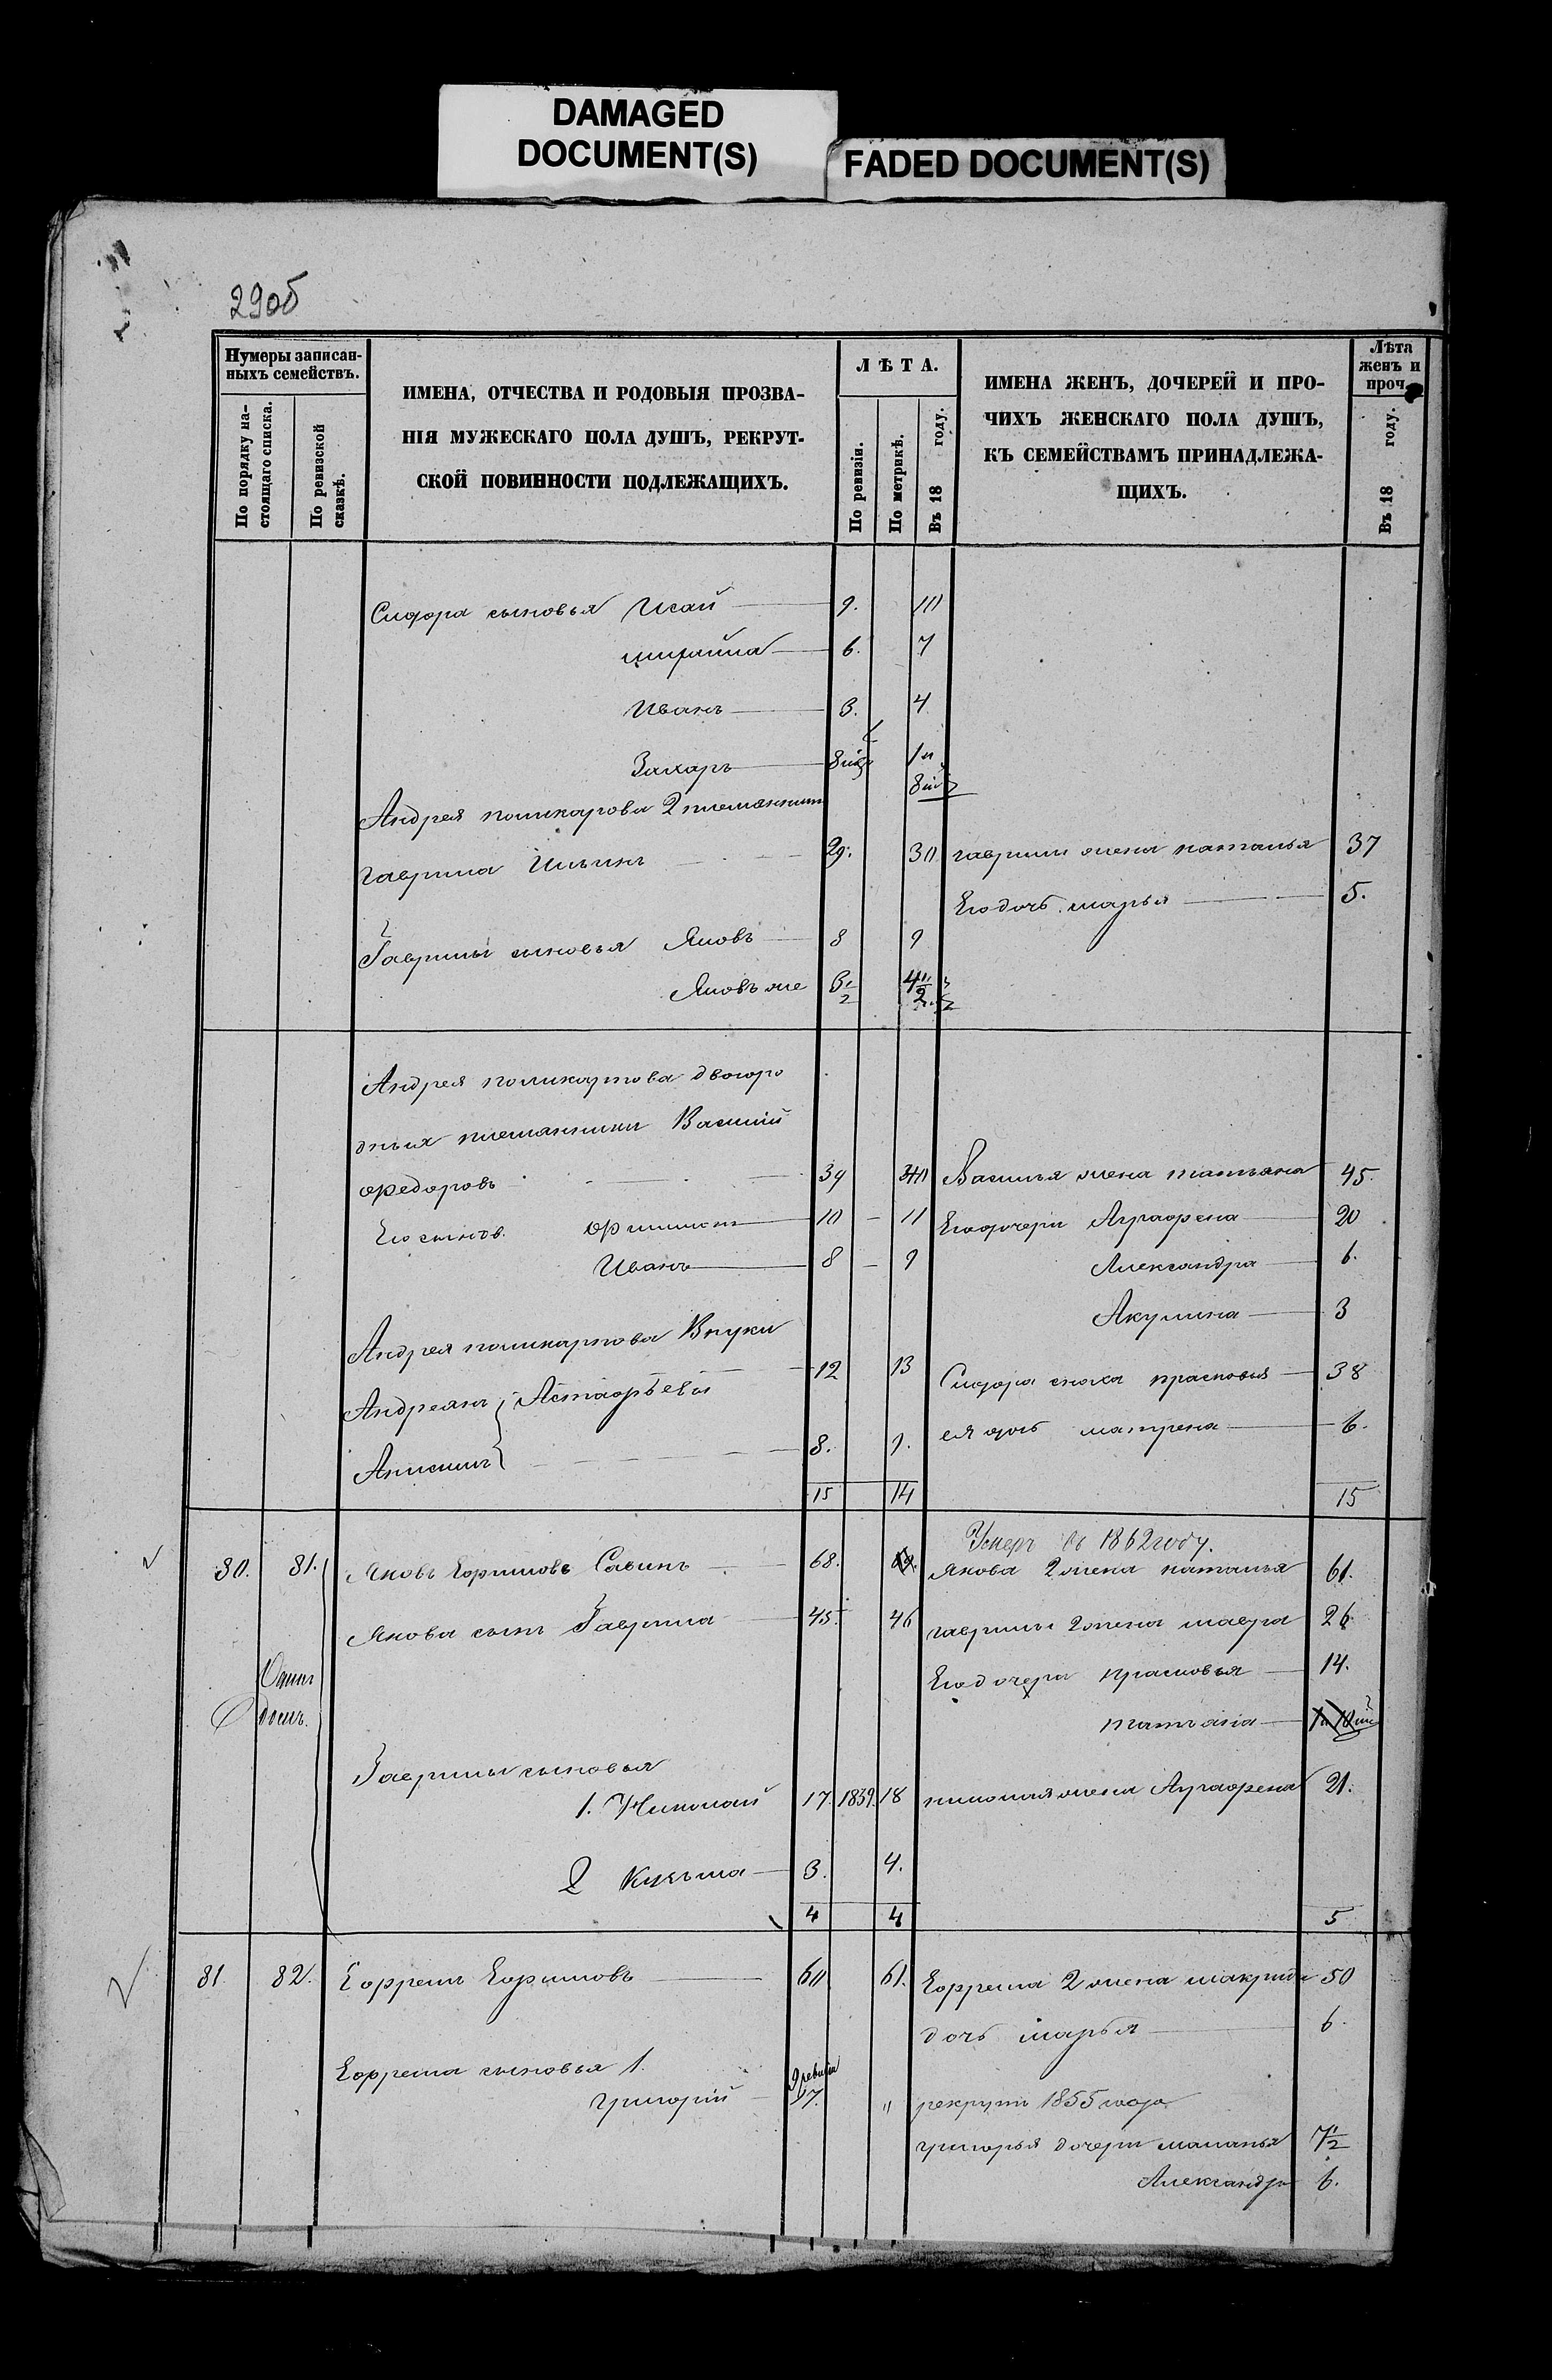 DAMAGED
DOCUMENT(S)
FADED DOCUMENT(S)
290б
Нумеры записан-
ныхъ семействъ.
По порядку на-
стоящаго списка.
По ревизской
сказкѣ.
ИМЕНА, ОТЧЕСТВА И РОДОВЫЯ ПРОЗВА-
НІЯ МУЖЕСКАГО ПОЛА ДУШЪ, РЕКРУТ-
СКОЙ ПОВИННОСТИ ПОДЛЕЖАЩИХЪ.
ЛѢТА.
По ревизіи.
По метрикѣ.
Въ 18 году.
ИМЕНА ЖЕНЪ, ДОЧЕРЕЙ И ПРО-
ЧИХЪ ЖЕНСКАГО ПОЛА ДУШЪ,
КЪ СЕМЕЙСТВАМЪ ПРИНАДЛЕЖА-
ЩИХЪ.
Лѣта
женъ и
проч.
Въ 18 году.
Сидора сыновья Исай 9. 10
6. 7
Иванъ 3. 4
Захаръ
Андрея поликарпова 2 племянникъ
Гаврила Ильинъ 29. 30 гаврилы жена наталья 37
Его дочь марья 5.
Гаврилы сыновья Яковъ 8 9
Яковъ же 3 1/2
Андрея поликарпова двоюро
дныя племянники Василій
Федоровъ 39 40 Василья жена татьяна 45.
Его сынов. Филипъ 10 – 11 Его дочери Аграфена 20
Иванъ 8 – 9 Александра 6.
Акулина 3
Андрея поликарпова Внуки
Андреянъ Астафьевы 12 13 Сидора сноха прасковья 38
Анисимъ 8. 9. ея дочь матрена 6.
15 14 15
Умеръ въ 1862 году.
80. 81. Яковъ Ефимовъ Савинъ 68. 69. Якова 2 жена наталья 61.
Якова сынъ Гаврила 45. 46 гаврилы 2 жена мавра 26
Одинъ
домъ.
Его дочери прасковья 14.
татьяна
Гаврилы сыновья
1. Николай 17. 1839. 18 николая жена Аграфена 21.
2 Кузьма 3. 4.
4 4 5
81. 82. Ефремъ Ефимовъ 60 61. Ефрема 2 жена макрида 50
дочь марья 6.
Ефрема сыновья 1.
Григорій 9 ревизіи 17. " рекрутъ 1855 года
григорья дочери маланья 7 1/2
Александра 6.